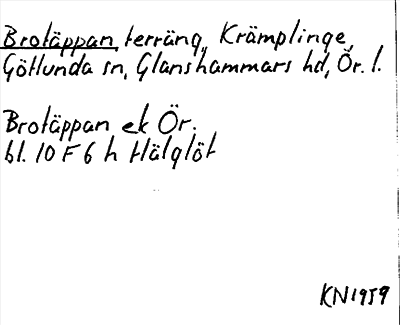 Brotäppan, terräng, Krämplinge,
Götlunda sn, Glanshammars hd, Ör. l.
Brotäppan ek Ör.
bl. 10 F 6 h Hälglöt
KN1959